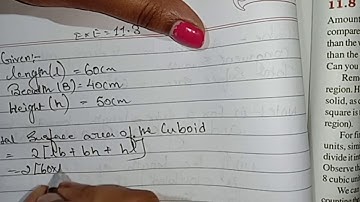 Ex:- 11.3
Given:-
length(l) = 60cm
Breadth (B) = 40cm
Height (h) = 50cm
Surface area of the Cuboid
= 2[lb + bh + hl]
= 2[60x
11.8
Amoun
compare
than the v
than the
Can you
Reme
region. H
solid, as
square is
region).
For fi
units, sim
divide it i
Observe th
8 cubic uni
We can